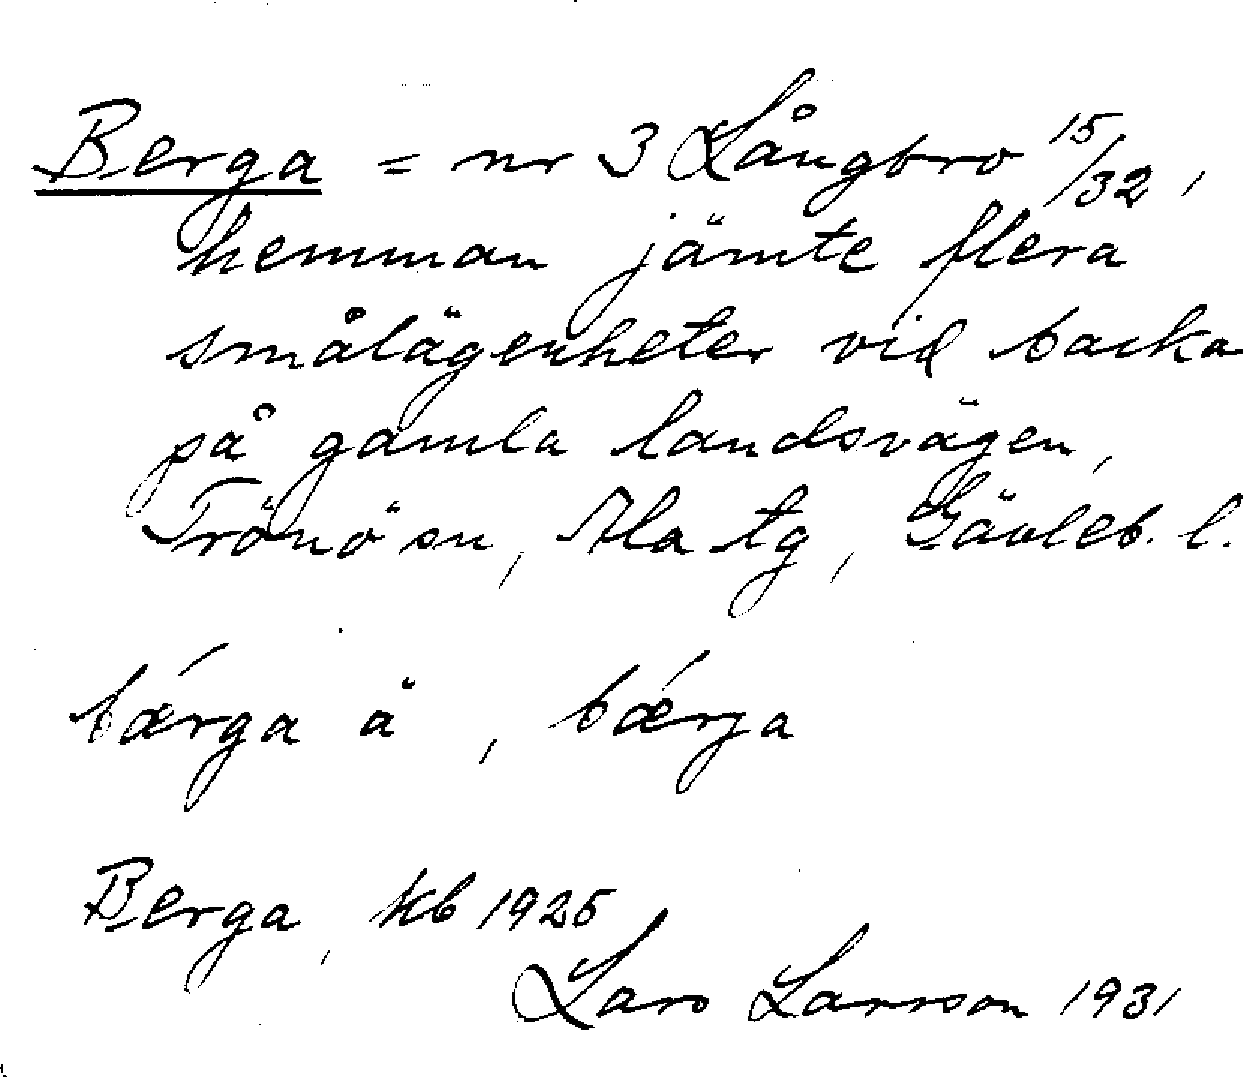 Berga = nr 3 Långbro 15/32,
hemman jämte flera
smålägenheter vid backa
på gamla landsvägen,
Trönö sn, Ala tg, Gävleb. l.
bǽrga ä, bǽrja
Berga, kb 1925
Lars Larsson 1931